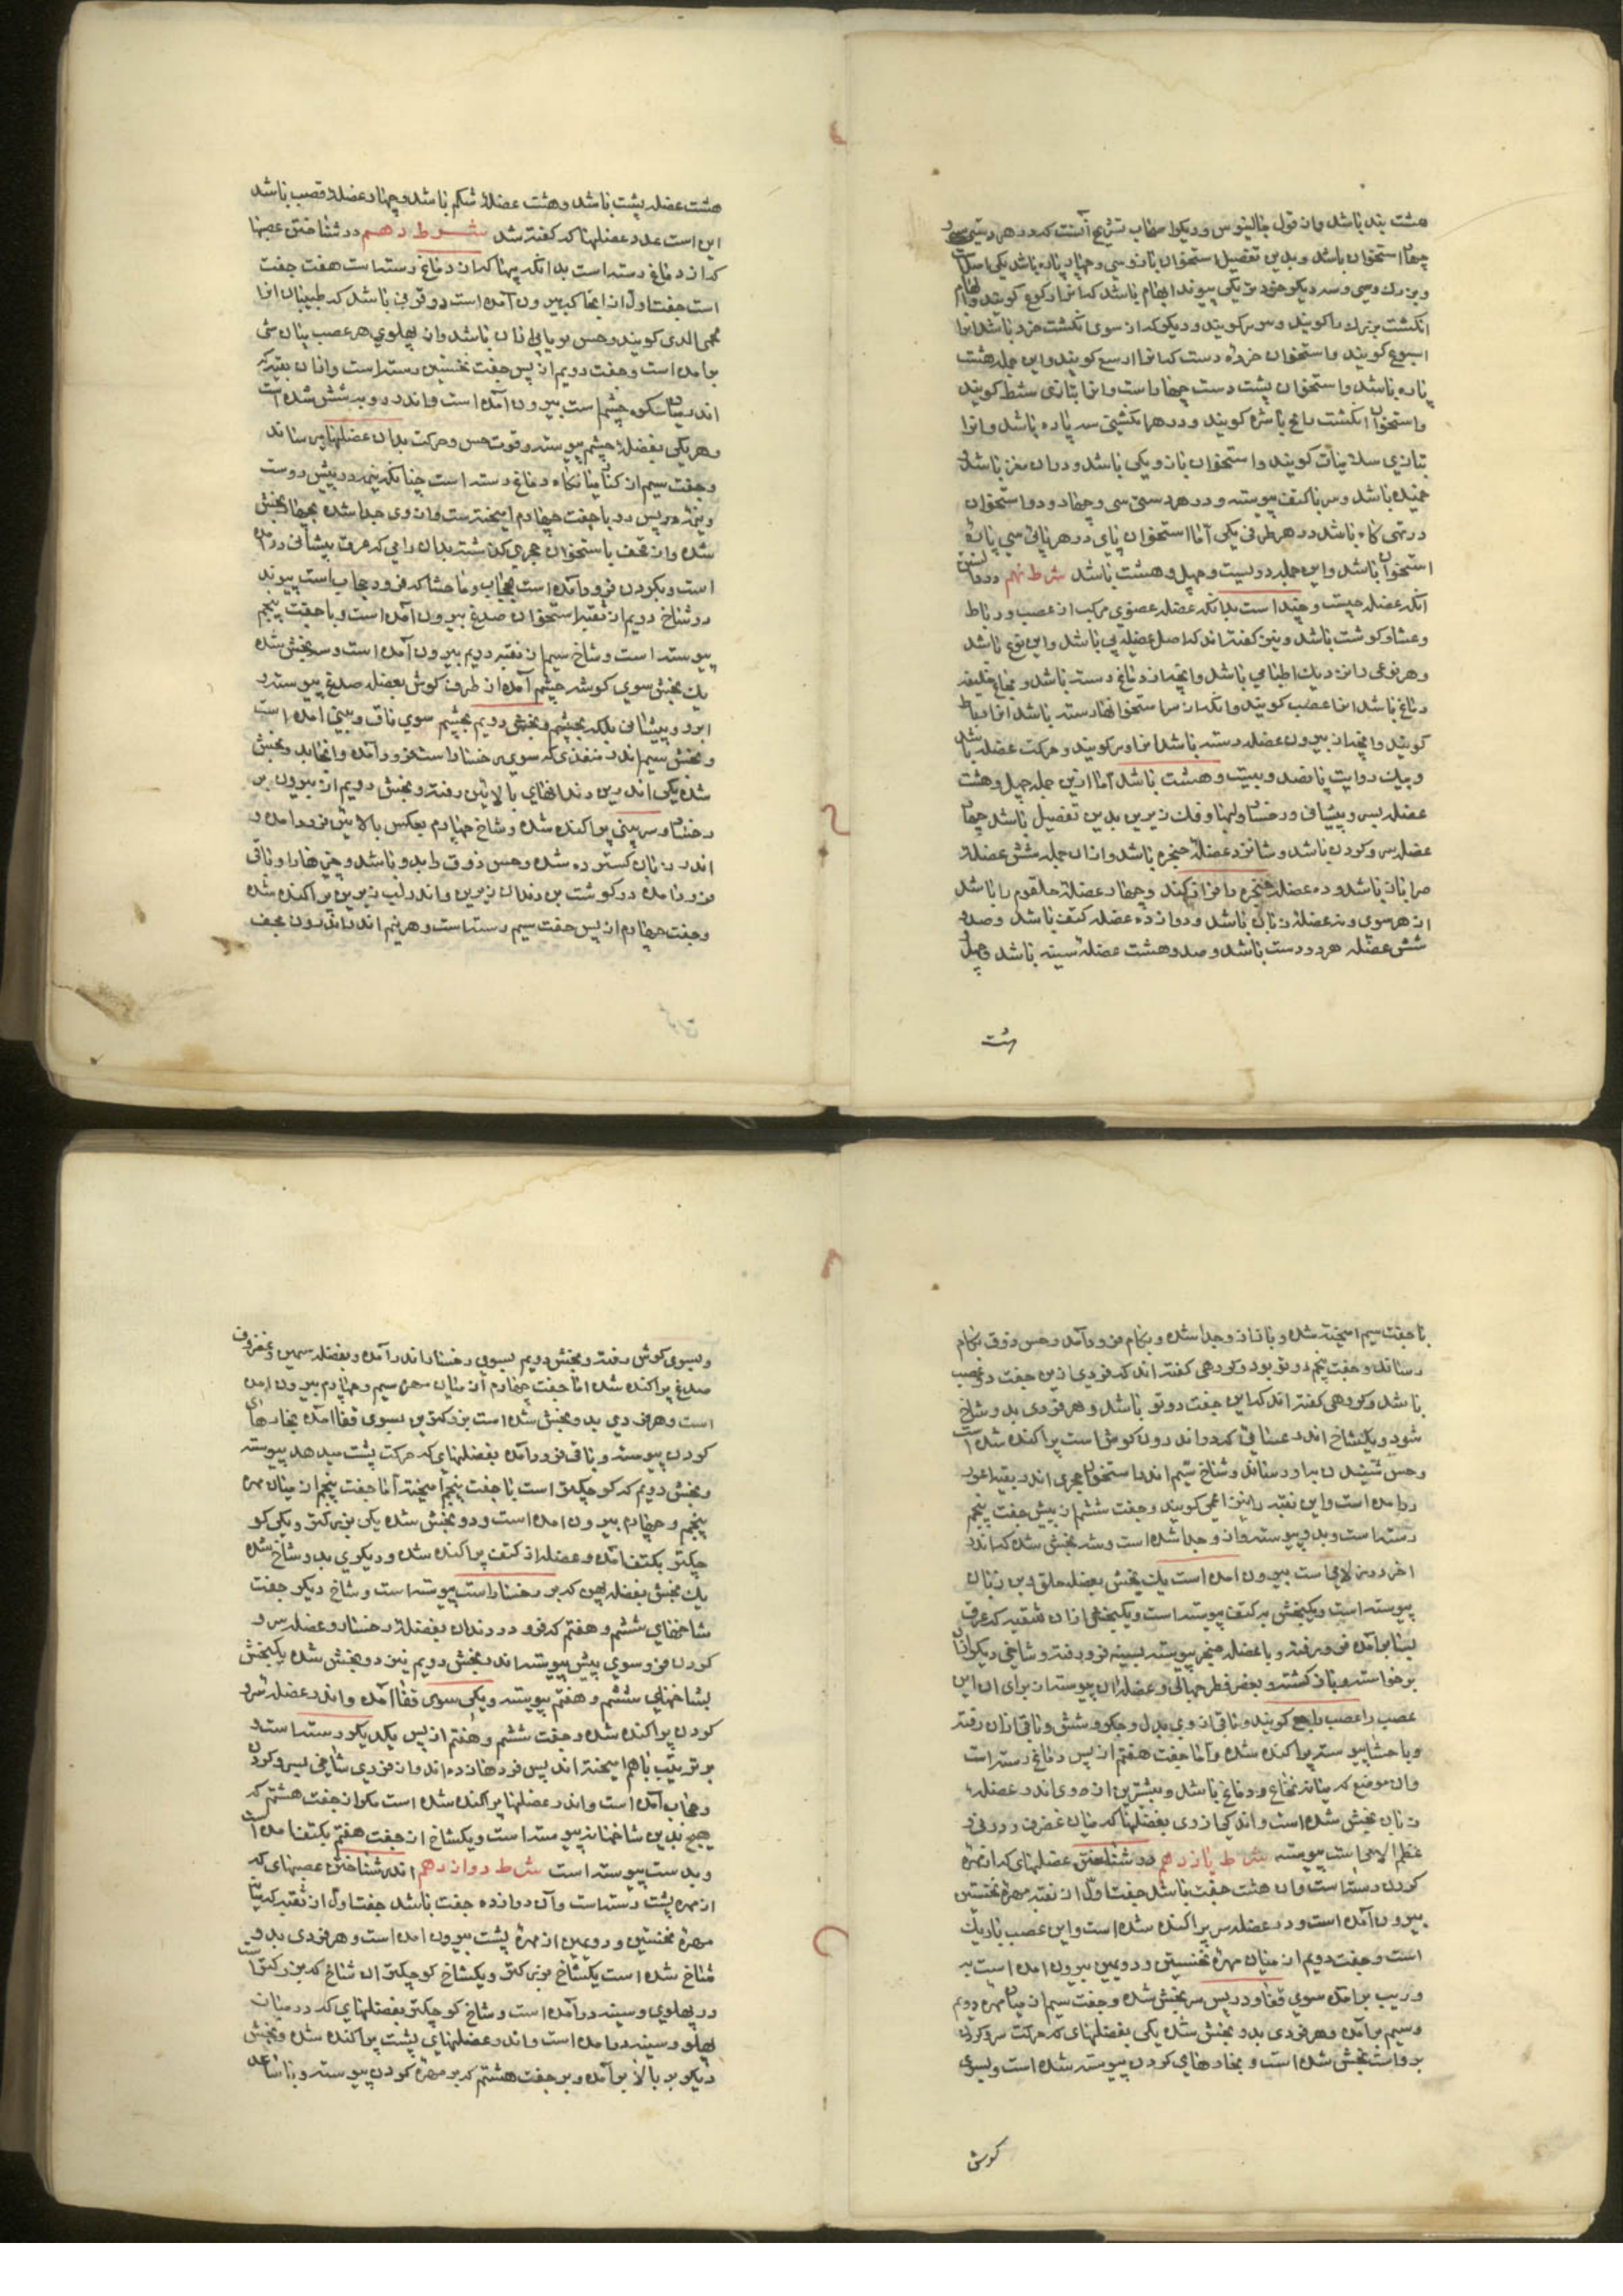 هشت بند باشد و از قول جالینوس و دیگر اصحاب تشریح آنست که در هر دستی
چهار استخوان باشد و بدین تفصیل استخوان بازو سی و چهار پاره باشد یکی
و بزرگ و سی و سه دیگر خرد تر یکی پیوند ابهام باشد که آنرا کوع کویند و ابهام
انکشت بزرك را کویند و سر کویند و دیگر که از سوی انکشت خرد باشد آنرا
کویند و استخوان خرده دست که آنرا رسغ کویند و این جمله هشت
پاره باشد و استخوان پشت دست چهار است و آنرا بتازی مشط کویند
و استخوان انکشت کویند و در هر انکشتی سه پاره باشد و آنرا
بتازی کویند و استخوان بازو یکی باشد و در آن مغز باشد
خمیده باشد و سر با کتف پیوسته و در هر دستی سی و چهار و دو استخوان
در تهی کاه باشد در هر طرفی یکی اما استخوان پای در هر پائی سی پاره
استخوان باشد و این جمله دویست و چهل و هشت باشد شرط نهم در دانستن
آنکه عضله چیست و چند است بدانکه عضله عضوی مرکب از عصب و رباط
و غشا و کوشت باشد و نیز کفته اند که اصل عضله پی باشد و این نوع باشد
و هر نوعی را از دیك اطبا نامی باشد و آنچه از دماغ رسته باشد و نخاع خلیفه
دماغ باشد آنرا عصب کویند و آنکه از سر استخوانها رسته باشد آنرا رباط
کویند و آنچه از بیرون عضله رسته باشد آنرا وتر کویند و حرکت عضله باشد
و بیك روایت پانصد و بیست و هشت باشد اما ازین جمله چهل و هشت
عضله بسر و پیشانی و رخسار و لبها و فك زیرین بدین تفصیل باشد چهار
عضله سر و کردن باشد و شانزده عضله حنجره باشد و از آن جمله شش عضله
باشد و ده عضله حنجره را فراز کند و چهار عضله حلقوم را باشد
از هر سوی و نه عضله زبان باشد و دوازده عضله کتف باشد و صد و
شش عضله هر دو دست باشد و صد و هشت عضله سینه باشد و چهل
هشت
هشت عضله پشت باشد و هشت عضله شکم باشد و چهار عضله قضیب باشد
این است عدد عضلها که کفته شد شرط دهم در شناختن عصبها
که از دماغ رسته است بدانکه پیها که از دماغ رسته است هفت جفت
است جفت اول از آنجا که بیرون آمده است دو فزونی باشد که طبیبان آنرا
الثدی کویند و حس بویایی از آن باشد و از پهلوی هر عصب بینائی
برآمده است و جفت دویم از پس جفت نخستین رسته است و از آن نقبه که
اندر چشم است بیرون آمده است و اندر وی به شش شده است
و هر یکی بعضله چشم پیوسته و قوت حس و حرکت بدان عضلها میرساند
و جفت سیم از کنار دماغ رسته است چنانکه نیمه در پیش دوست
و نیمه در پس دو با جفت چهارم آمیخته است و از وی جدا شده بچهار بخش
شده و از قحف با ستخوان حجری کذشته بدان راهی که عرق پیشانی در آمده
است و بکردن فرود آمده است بحجاب و بأحشا که فرود حجاب است پیوند
دو شاخ دویم از نقبه استخوان صدغ بیرون آمده است و با جفت پنجم
پیوسته است و شاخ سیم از نقبه دویم بیرون آمده است و سه بخش شده
یك بخش سوی کوشه چشم آمده از طرف کوش بعضله صدغ پیوسته و
ابرو و پیشانی بلکه بچشم و بخش دویم بچشم سوی ماق و بینی آمده است
و بخش سیم اندر منفذی که سوی رخسار است فرود آمده و آنجا بدو بخش
شده یکی اندر بن دندانهای بالائین رفته و بخش دویم از بیرون بر
رخسار و سر بینی پراکنده شده و شاخ چهارم بعکس بالائین فرود آمده و
اندر زبان کسترده شده و حس ذوق را بدو باشد و چیزها را و باقی
فرود آمده در کوشت بن دندان زیرین و اندر لب زیرین پراکنده شده
و جفت چهارم از پس جفت سیم رسته است و هر نیم اندر اندرون قحف
با جفت سیم آمیخته شده و باز از او جدا شده و بکام فرود آمده و حس ذوق بکام
رساند و جفت پنجم دو تو بود و کروهی کفته اند که فردی ازین جفت دو عصب
باشد و کروهی کفته اند که این جفت دو تو باشد و هر فردی بدو شاخ
شود و یکشاخ اندر غشائی که در اندرون کوش است پراکنده شده است
و حس شنیدن بدو رساند و شاخ سیم اندر استخوان حجری اندر نقبه اعور
در آمده است و این نقبه را نیز اعمی کویند و جفت ششم از پیش جفت پنجم
رسته است و بدو پیوسته و از او جدا شده است و سه بخش شده که اندر
آخر درز لامی است بیرون آمده است یك بخش بعضله حلق و بن زبان
پیوسته است و یکبخش بر کتف پیوسته است و یکبخش از آن شقیه که عرق
فرو رفته و با عضله حنجر پیوسته بسینه فرو رفته و شاخی دیکر از آن
برخواسته و باز کشته و بعضی پیوسته از برای آن این
عصب را عصب راجع کویند و باقی از وی بدل و جکر و شش و باقی از آن رفته
و با حشا پیوسته پراکنده شده و اما جفت هفتم از پس دماغ رسته است
و از موضع که میانه نخاع و دماغ باشد و بیشترین از وی اندر عضله
زبان بخش شده است و اندکی از وی بعضلها که میان غضروف درقی و
عظم لامی است پیوسته شرط یازدهم در شناختن عضلهای که از مهره
کردن رسته است و آن هشت جفت باشد جفت اول از نقبه مهره نخستین
بیرون آمده است و در عضله سر پراکنده شده است و این عصب باریك
است و جفت دویم از میان مهره نخستین و دویمین بیرون آمده است به
وریب برآمده سوی قفا و در پس سر بخش شده و جفت سیم از میان مهره دویم
و سیم برآمده و هر فردی بدو بخش شده یکی بعضلهای که حرکت سر و کردن
بدوست بخش شده است و بخارهای کردن پیوسته شده است و بسوی
کوش
و بسوی کوش رفته و بخش دویم بسوی رخسار اندر آمده و بعضله پهن و غضروف
صدغ پراکنده شده اما جفت چهارم از میان مهره سیم و چهارم بیرون آمده
است و هر فردی بدو بخش شده است بزرکترین بسوی قفا آمده بخارهای
کردن پیوسته و باقی فرود آمده بعضلهای که حرکت پشت میدهد پیوسته
و بخش دویم که کوچکتر است با جفت پنجم آمیخته اما جفت پنجم از میان مهره
پنجم و چهارم بیرون آمده است و دو بخش شده یکی بزرکتر و یکی کو
چکتر بکتف آمده و عضله از کتف پراکنده شده و دیکری بدو شاخ شده
یك بخش بعضله پهن که بر رخسار است پیوسته است و شاخ دیکر جفت
شاخهای ششم و هفتم که فرود دندان بعضله رخسار و عضله سر و
کردن فرو سوی پیش پیوسته اند و بخش دویم نیز دو بخش شده یکبخش
بشاخهای ششم و هفتم پیوسته و یکی سوی قفا آمده و اندر عضله سر و
کردن پراکنده شده و جفت ششم و هفتم از پس یکدیکر رسته است و
بر ترتیب باهم آمیخته اند پس فرد ها زده اند و از فردی شاخی بسر و کردن
و حجاب آمده است و اندر عضلها پراکنده شده است مکر از جفت هشتم که
هیچ بدین شاخها نه پیوسته است و یکشاخ از جفت هفتم بکتف آمده است
و بدست پیوسته است شرط دوازدهم اندر شناختن عصبهای که
از مهره پشت رسته است و آن دوازده جفت باشد جفت اول از نقبه که میان
مهره نخستین و دویمین از مهره پشت بیرون آمده است و هر فردی بدو
شاخ شده است یکشاخ بزرکتر و یکشاخ کوچکتر آن شاخ که بزرکتر است
در پهلوی و سینه در آمده است و شاخ کوچکتر بعضلهای که در میان
پهلو و سینه در آمده است و اندر عضلهای پشت پراکنده شده و بخش
دیکر بر بالا برآمده و بر جفت هشتم که بر مهره کردن پیوسته و با ساعد